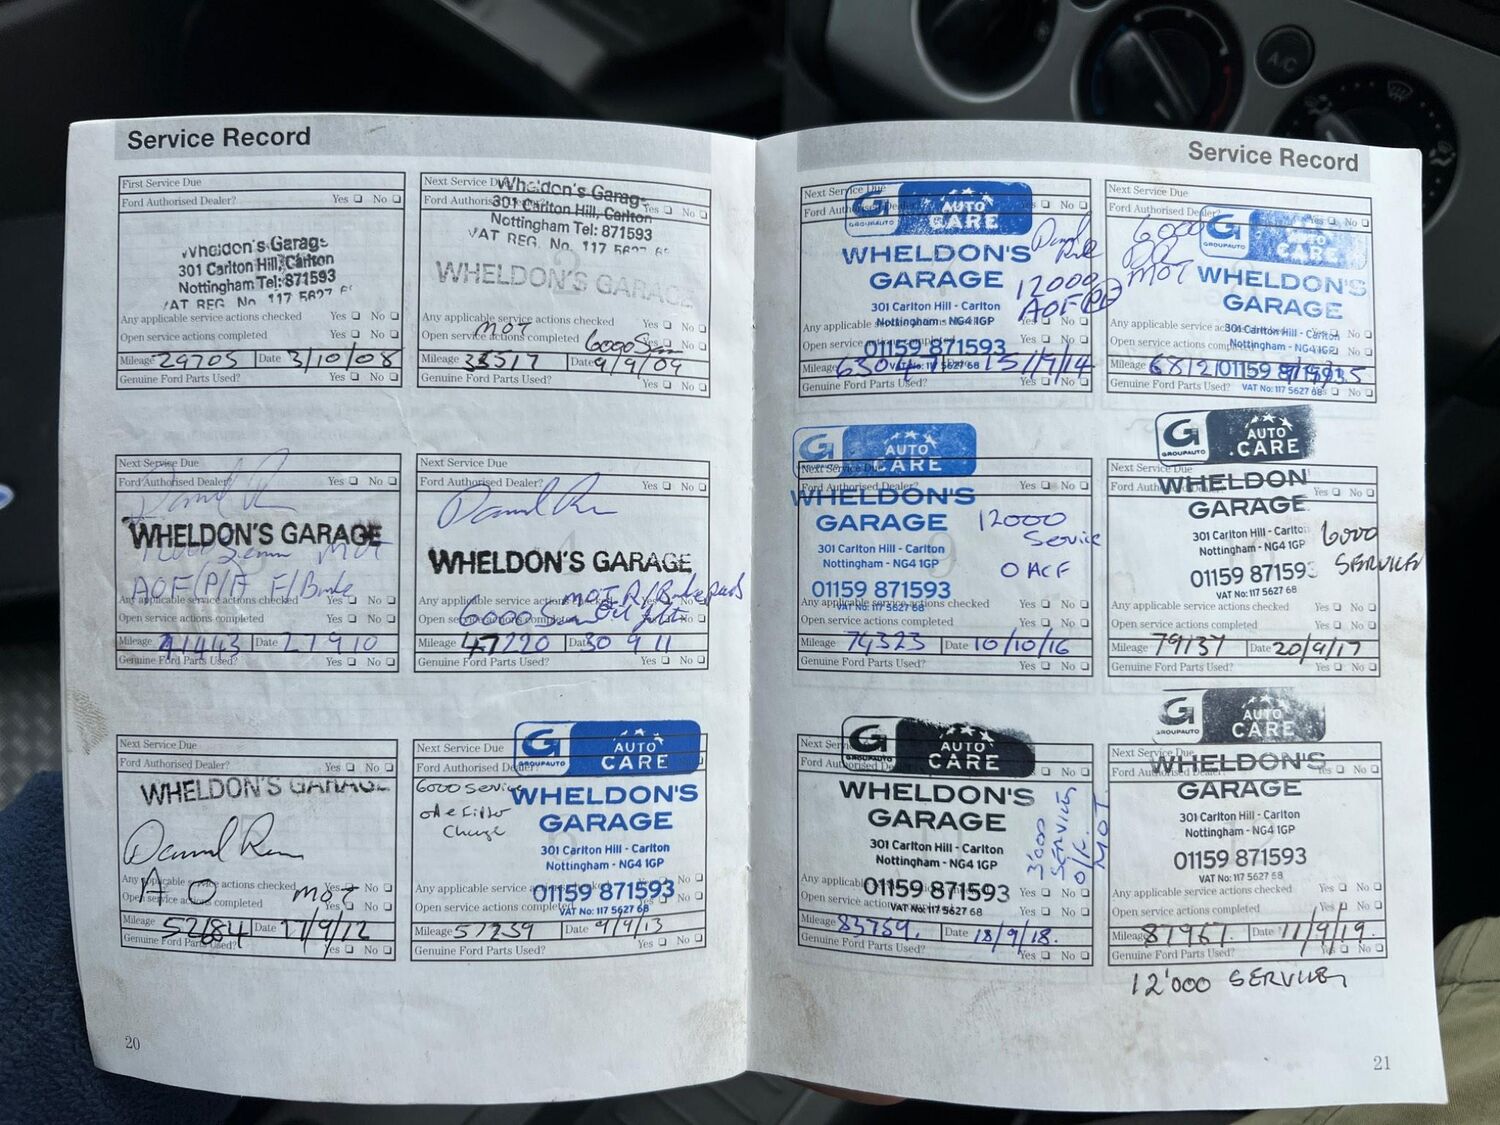 Service Record
First Service Due
Ford Authorised Dealer? Yes No
Wheldon's Garage
301 Carlton Hill, Carlton
Nottingham Tel: 871593
VAT REG. No. 117 5627
Any applicable service actions checked Yes No
Open service actions completed Yes No
Mileage 29705 Date 3/10/08
Genuine Ford Parts Used? Yes No
Next Service Due
Ford Authorised Dealer? Yes No
Wheldon's Garage
301 Carlton Hill, Carlton
Nottingham Tel: 871593
VAT REG. No. 117 5627
WHELDON'S GARAGE
Any applicable service actions checked Yes No
MOT
Open service actions completed Yes No
6000
Mileage Date 9/9/09
Genuine Ford Parts Used? Yes No
Next Service Due
Ford Authorised Dealer? Yes No
WHELDON'S GARAGE
12000 MOT
AOF/P/F F/Brake
Any applicable service actions checked Yes No
Open service actions completed Yes No
Mileage 41443 Date 27 9 10
Genuine Ford Parts Used? Yes No
Next Service Due
Ford Authorised Dealer? Yes No
WHELDON'S GARAGE
MOT R/Brake pads
Any applicable service actions checked Yes No
6000 Oil
Open service actions completed Yes No
Mileage 47220 Date 30 9 11
Genuine Ford Parts Used? Yes No
Next Service Due
Ford Authorised Dealer? Yes No
WHELDON'S GARAGE
Any applicable service actions checked Yes No
A O MOT
Open service actions completed Yes No
Mileage 52684 Date 17/9/12
Genuine Ford Parts Used? Yes No
Next Service Due
G GROUPAUTO AUTO CARE
Ford Authorised Dealer?
6000 Service
WHELDON'S
GARAGE
Change
301 Carlton Hill - Carlton
Nottingham - NG4 1GP
Any applicable service actions checked Yes No
01159 871593
Open service actions completed Yes No
VAT No: 117 5627 68
Mileage 57259 Date 9/9/13
Genuine Ford Parts Used? Yes No
20
Service Record
Next Service Due
G GROUPAUTO AUTO CARE
Ford Authorised Dealer? Yes No
WHELDON'S
GARAGE
12000
AOF
301 Carlton Hill - Carlton
Nottingham - NG4 1GP
Any applicable service actions checked Yes No
Open service actions completed Yes No
01159 871593
VAT No: 117 5627 68
Mileage Date 15/9/14
Genuine Ford Parts Used? Yes No
Next Service Due
Ford Authorised Dealer? Yes No
G GROUPAUTO AUTO CARE
6000
MOT
WHELDON'S
GARAGE
301 Carlton Hill - Carlton
Nottingham - NG4 1GP
Any applicable service actions checked
Open service actions completed
01159 871593
VAT No: 117 5627 68
Mileage Date
Genuine Ford Parts Used? Yes No
G GROUPAUTO AUTO CARE
Next Service Due
Ford Authorised Dealer? Yes No
WHELDON'S
GARAGE
12000
Service
301 Carlton Hill - Carlton
Nottingham - NG4 1GP
01159 871593
Any applicable service actions checked Yes No
VAT No: 117 5627 68
Open service actions completed Yes No
Mileage 74323 Date 10/10/16
Genuine Ford Parts Used? Yes No
G GROUPAUTO AUTO CARE
Next Service Due
Ford Authorised Dealer? Yes No
WHELDON'S
GARAGE
6000
SERVICE
301 Carlton Hill - Carlton
Nottingham - NG4 1GP
01159 871593
VAT No: 117 5627 68
Any applicable service actions checked Yes No
Open service actions completed Yes No
Mileage 79137 Date 20/9/17
Genuine Ford Parts Used? Yes No
G GROUPAUTO AUTO CARE
Next Service Due
Ford Authorised Dealer? Yes No
WHELDON'S
GARAGE
SERVICE
MOT
301 Carlton Hill - Carlton
Nottingham - NG4 1GP
Any applicable service actions checked Yes No
01159 871593
Open service actions completed Yes No
VAT No: 117 5627 68
Mileage 83759. Date 18/9/18.
Genuine Ford Parts Used? Yes No
G GROUPAUTO AUTO CARE
Next Service Due
Ford Authorised Dealer? Yes No
WHELDON'S
GARAGE
301 Carlton Hill - Carlton
Nottingham - NG4 1GP
01159 871593
VAT No: 117 5627 68
Any applicable service actions checked Yes No
Open service actions completed Yes No
Mileage 87967. Date 11/9/19.
Genuine Ford Parts Used? Yes No
12'000 SERVICE
21